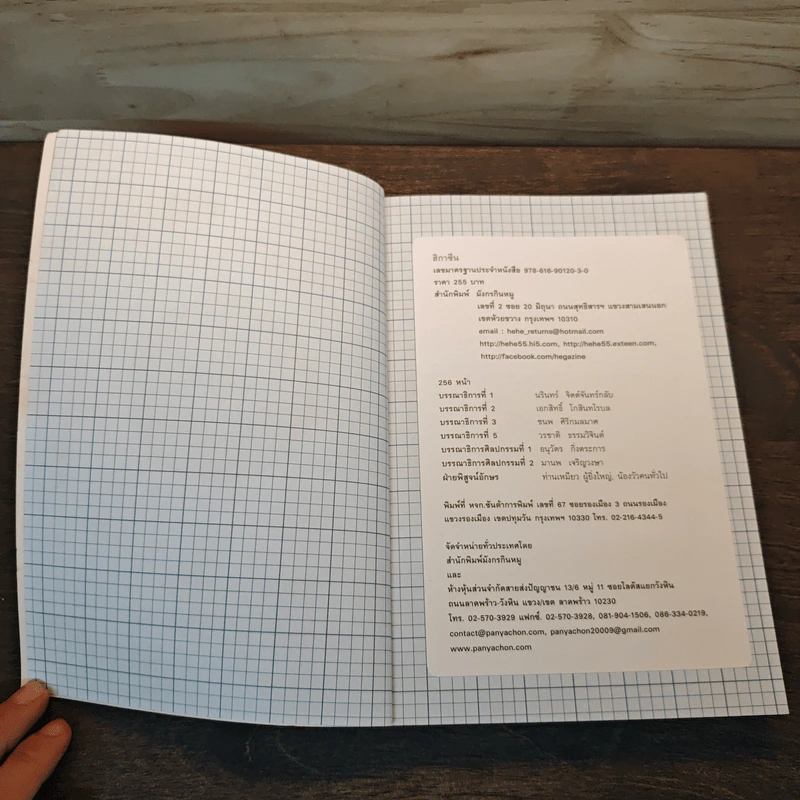 ฮิกาซีน
เลขมาตรฐานประจำหนังสือ 978-616-90120-3-0
ราคา 255 บาท
สำนักพิมพ์ มังกรกินหมู
เลขที่ 2 ซอย 20 มิถุนา ถนนสุทธิสารฯ แขวงสามเสนนอก
เขตห้วยขวาง กรุงเทพฯ 10310
email : hehe_returns@hotmail.com
http://hehe55.hi5.com, http://hehe55.exteen.com,
http://facebook.com/hegazine
256 หน้า
บรรณาธิการที่ 1 นรินทร์ จิตต์จันทร์กลับ
บรรณาธิการที่ 2 เอกสิทธิ์ โกสินทโรบล
บรรณาธิการที่ 3 ชนพ ศิริกมลมาศ
บรรณาธิการที่ 5 วรชาติ ธรรมวิจินต์
บรรณาธิการศิลปกรรมที่ 1 อนุวัตร กิ่งตระการ
บรรณาธิการศิลปกรรมที่ 2 มานพ เจริญวงษา
ฝ่ายพิสูจน์อักษร ท่านเหมียว ผู้ยิ่งใหญ่, น้องวัวคนทั่วไป
พิมพ์ที่ หจก.ขันดำการพิมพ์ เลขที่ 67 ซอยรองเมือง 3 ถนนรองเมือง
แขวงรองเมือง เขตปทุมวัน กรุงเทพฯ 10330 โทร. 02-216-4344-5
จัดจำหน่ายทั่วประเทศโดย
สำนักพิมพ์มังกรกินหมู
และ
ห้างหุ้นส่วนจำกัดสายส่งปัญญาชน 13/6 หมู่ 11 ซอยโลตัสแยกวังหิน
ถนนลาดพร้าว-วังหิน แขวง/เขต ลาดพร้าว 10230
โทร. 02-570-3929 แฟกซ์. 02-570-3928, 081-904-1506, 086-334-0219,
contact@panyachon.com, panyachon20009@gmail.com
www.panyachon.com